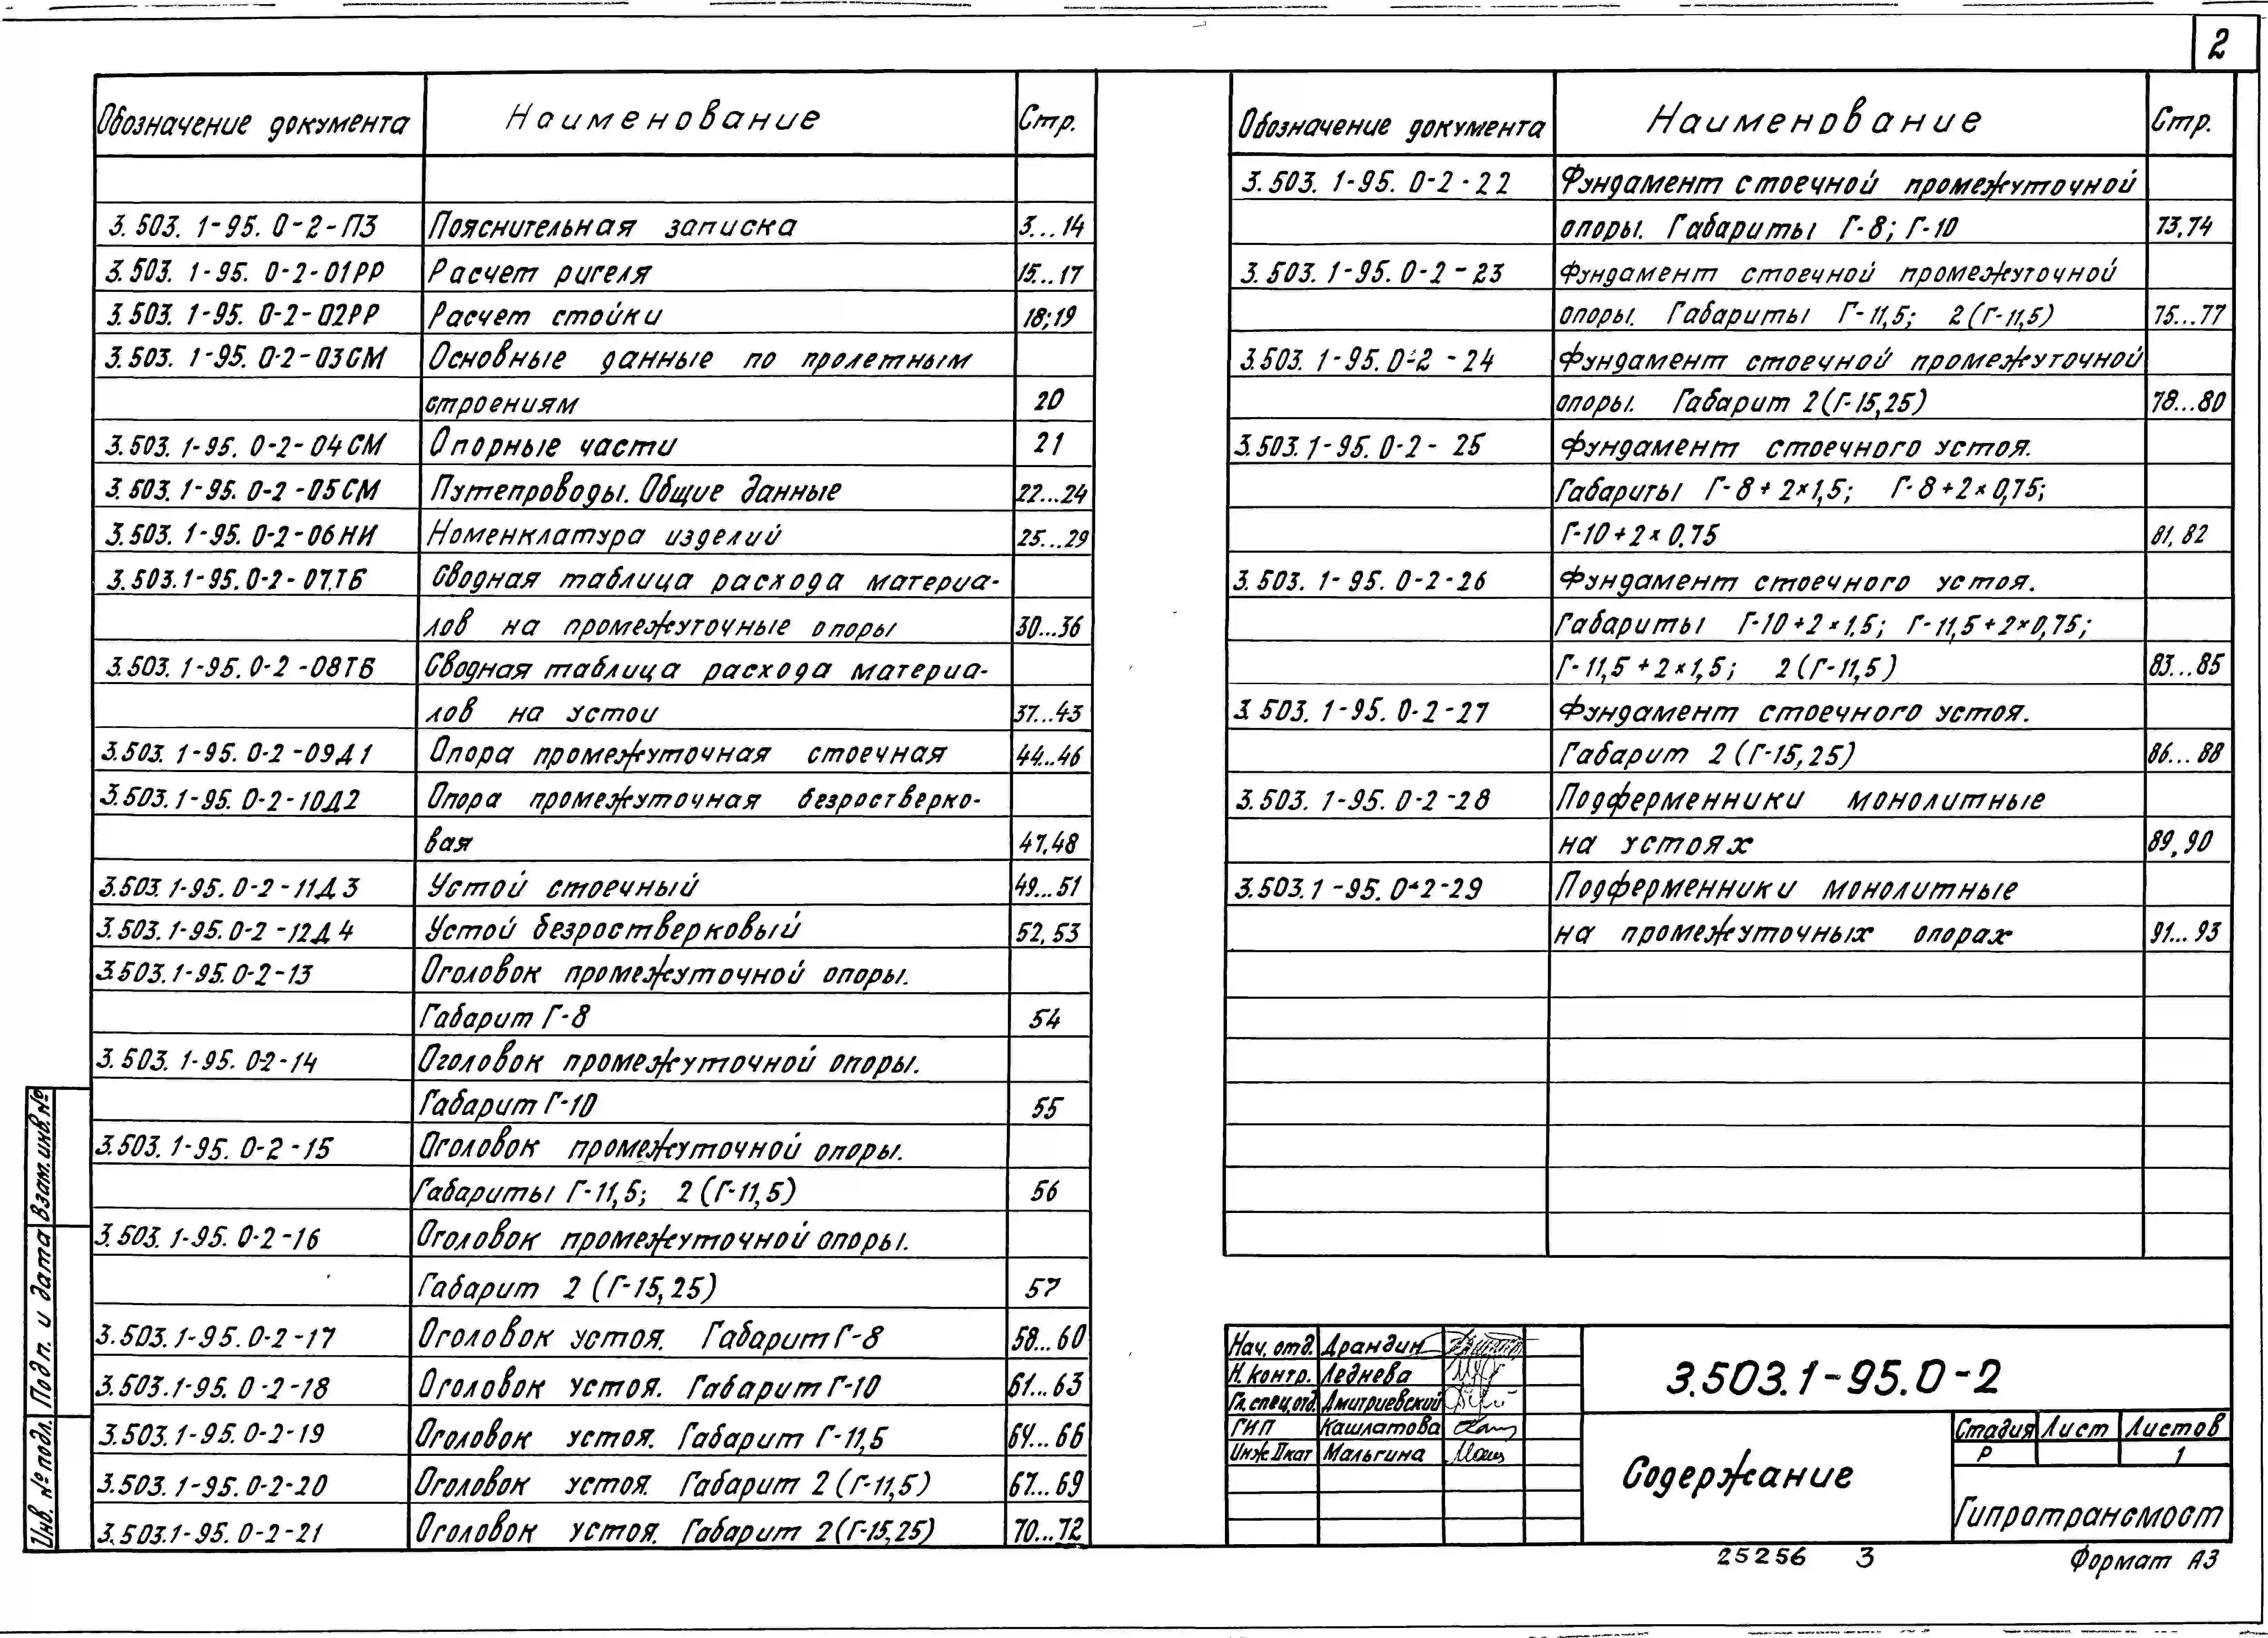 2
Обозначение документа Наименование Стр.
3.503.1-95.0-2-ПЗ Пояснительная записка 3...14
3.503.1-95.0-2-01РР Расчет ригеля 15...17
3.503.1-95.0-2-02РР Расчет стойки 18;19
3.503.1-95.0-2-03СМ Основные данные по пролетным
строениям 20
3.503.1-95.0-2-04СМ Опорные части 21
3.503.1-95.0-2-05СМ Путепроводы. Общие данные 22...24
3.503.1-95.0-2-06НИ Номенклатура изделий 25...29
3.503.1-95.0-2-07.ТБ Сводная таблица расхода материа-
лов на промежуточные опоры 30...36
3.503.1-95.0-2-08ТБ Сводная таблица расхода материа-
лов на устои 37...43
3.503.1-95.0-2-09Д1 Опора промежуточная стоечная 44...46
3.503.1-95.0-2-10Д2 Опора промежуточная безростверко-
вая 47,48
3.503.1-95.0-2-11Д3 Устой стоечный 49...51
3.503.1-95.0-2-12Д4 Устой безростверковый 52,53
3.503.1-95.0-2-13 Оголовок промежуточной опоры.
Габарит Г-8 54
3.503.1-95.0-2-14 Оголовок промежуточной опоры.
Габарит Г-10 55
3.503.1-95.0-2-15 Оголовок промежуточной опоры.
Габариты Г-11,5; 2(Г-11,5) 56
3.503.1-95.0-2-16 Оголовок промежуточной опоры.
Габарит 2(Г-15,25) 57
3.503.1-95.0-2-17 Оголовок устоя. Габарит Г-8 58...60
3.503.1-95.0-2-18 Оголовок устоя. Габарит Г-10 61...63
3.503.1-95.0-2-19 Оголовок устоя. Габарит Г-11,5 64...66
3.503.1-95.0-2-20 Оголовок устоя. Габарит 2(Г-11,5) 67...69
3.503.1-95.0-2-21 Оголовок устоя. Габарит 2(Г-15,25) 70...72
Обозначение документа Наименование Стр.
3.503.1-95.0-2-22 Фундамент стоечной промежуточной
опоры. Габариты Г-8; Г-10 73,74
3.503.1-95.0-2-23 Фундамент стоечной промежуточной
опоры. Габариты Г-11,5; 2(Г-11,5) 75...77
3.503.1-95.0-2-24 Фундамент стоечной промежуточной
опоры. Габарит 2(Г-15,25) 78...80
3.503.1-95.0-2-25 Фундамент стоечного устоя.
Габариты Г-8+2×1,5; Г-8+2×0,75;
Г-10+2×0.75 81,82
3.503.1-95.0-2-26 Фундамент стоечного устоя.
Габариты Г-10+2×1.5; Г-11,5+2×0,75;
Г-11,5+2×1,5; 2(Г-11,5) 83...85
3.503.1-95.0-2-27 Фундамент стоечного устоя.
Габарит 2(Г-15,25) 86...88
3.503.1-95.0-2-28 Подферменники монолитные
на устоях 89,90
3.503.1-95.0-2-29 Подферменники монолитные
на промежуточных опорах 91...93
Взам.инв.№
Подп. и дата
Инв. № подл.
Нач. отд. Драндин
Н.контр. Леднева
Гл.спец.отд. Дмитриевский
ГИП Кашлатова
Инж.IIкат Мальгина
3.503.1-95.0-2
Содержание
Стадия Лист Листов
Р 1
Гипротрансмост
25256 3 Формат А3